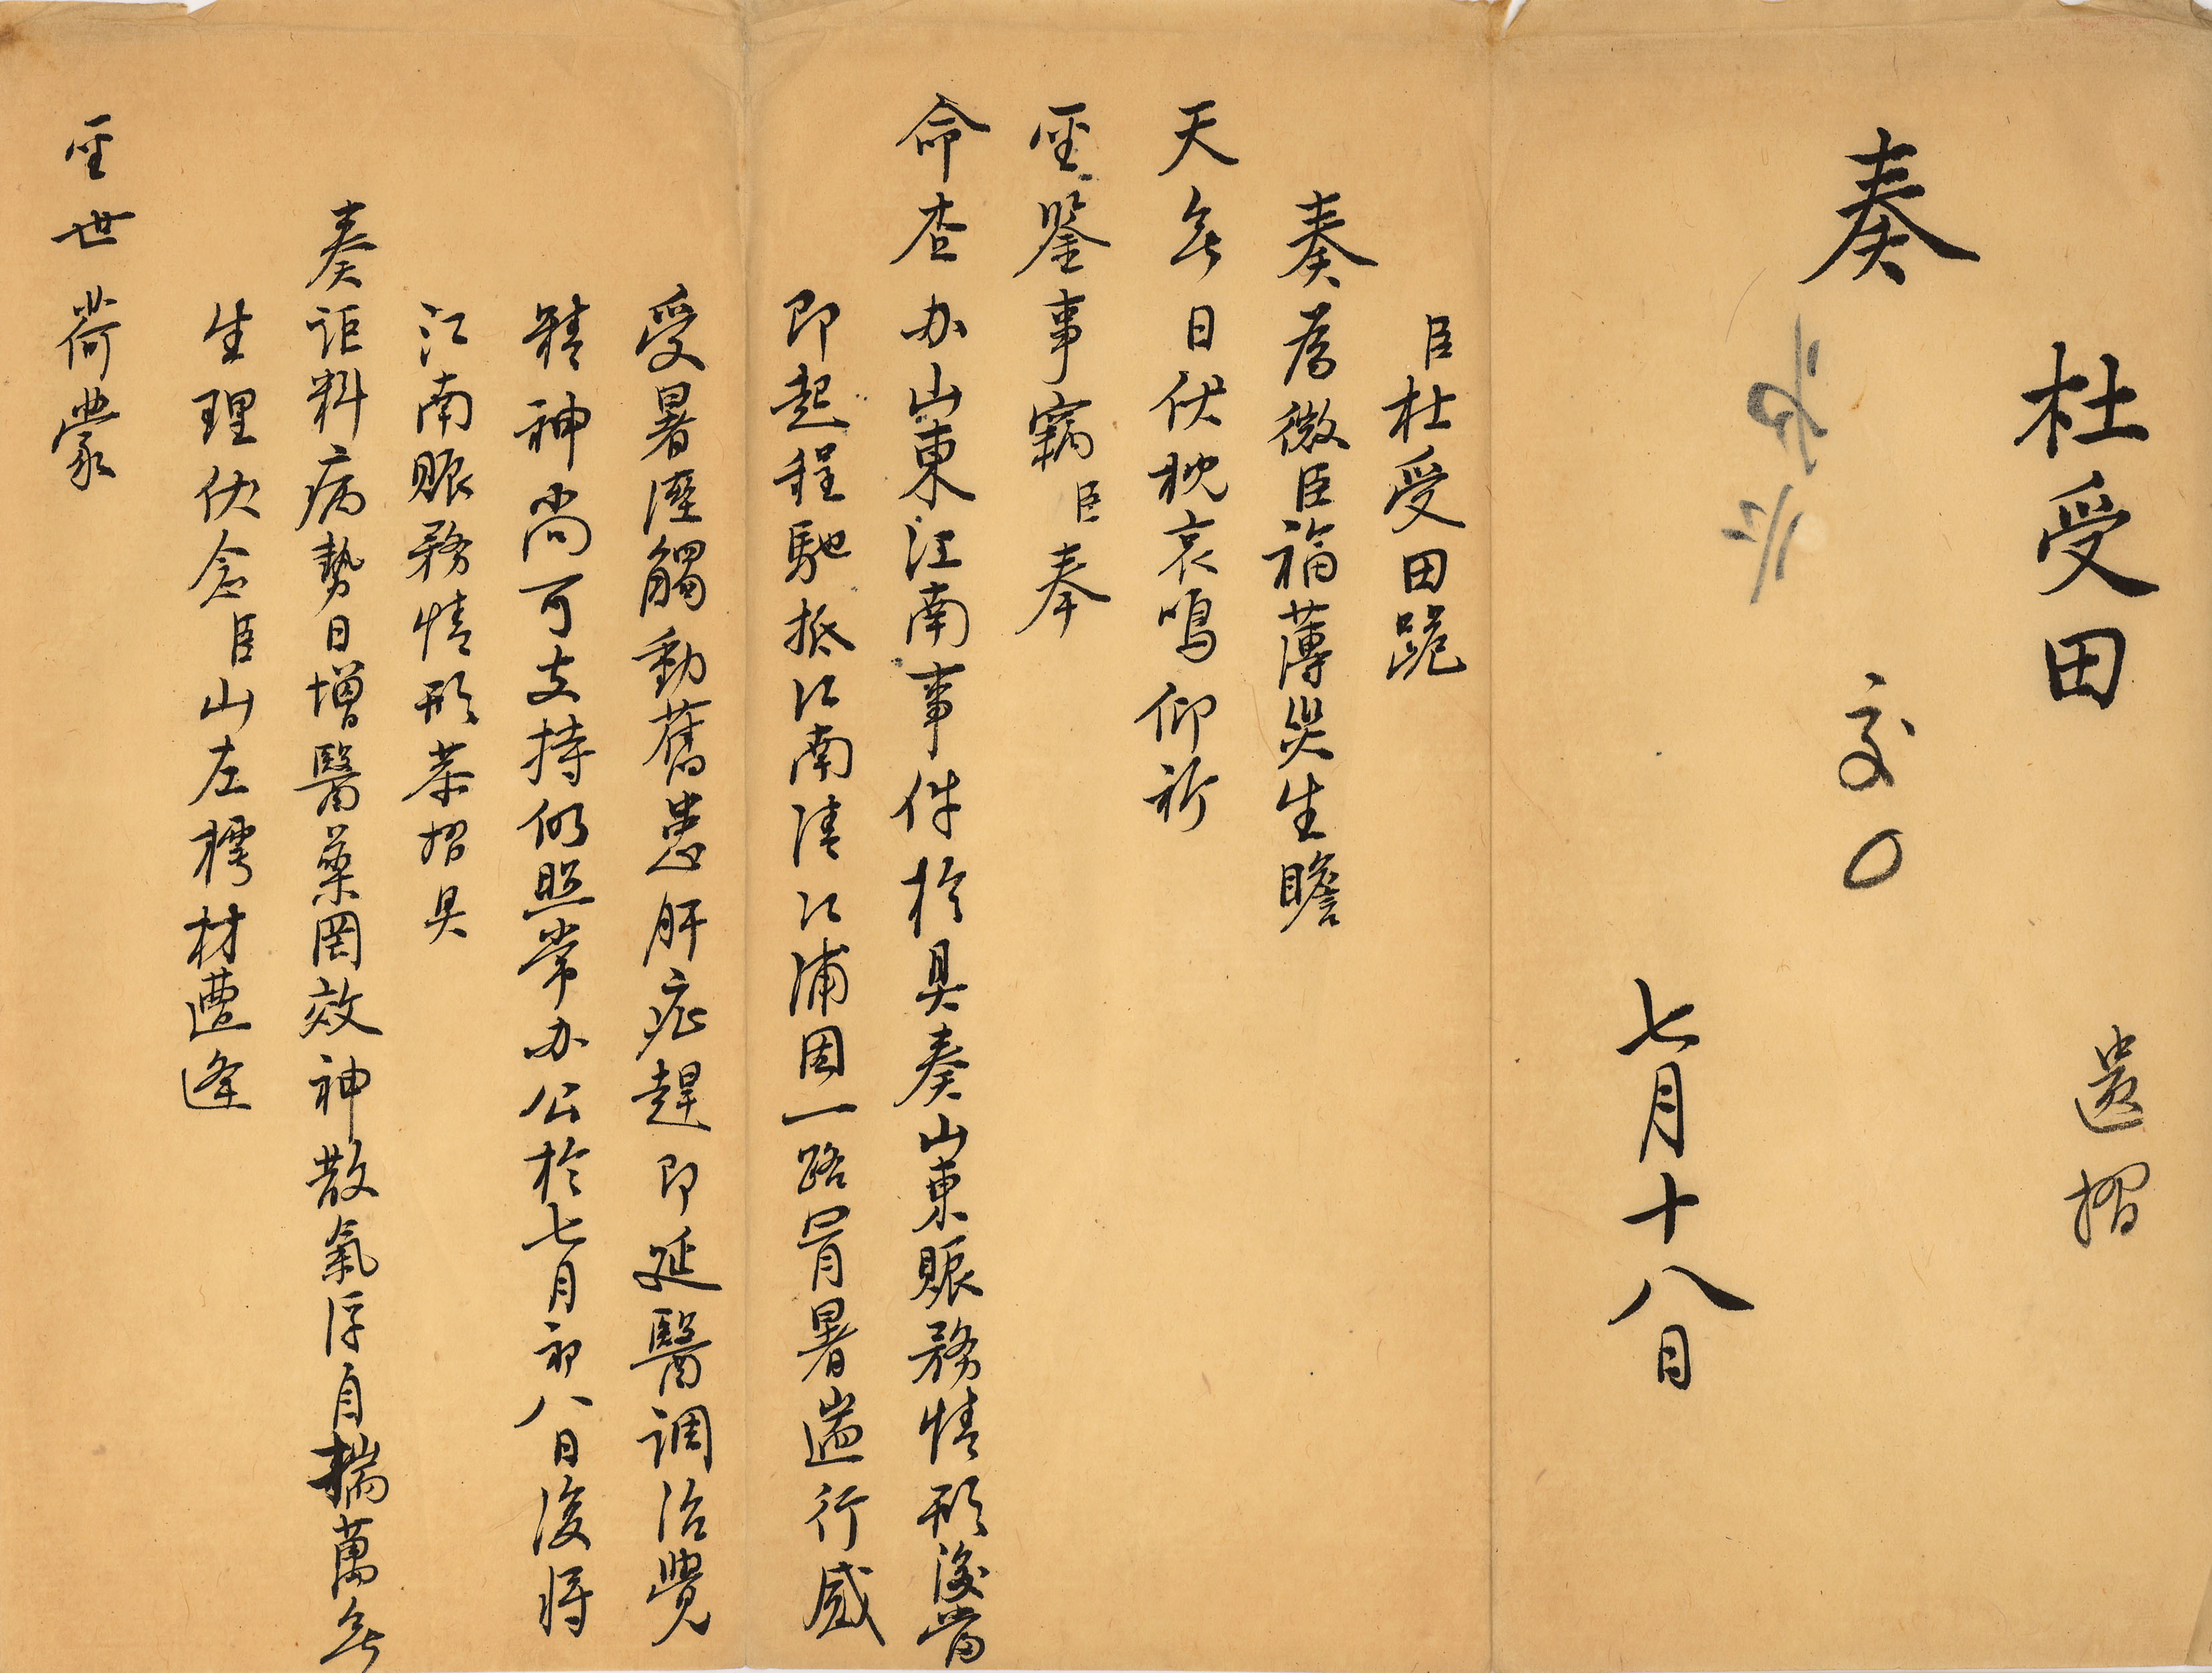 杜受田
遺摺
奏
交〇
七月十八日
臣杜受田跪
奏為微臣福薄災生瞻
天無日伏枕哀鳴仰祈
聖鑒事竊臣奉
命查办山東江南事件於具奏山東賑務情形後當
即起程馳抵江南清江浦因一路冒暑遄行感
受暑溼觸動舊患肝症趕即延醫調治覺
精神尚可支持仍照常办公於七月初八日復將
江南賑務情形恭摺具
奏詎料病勢日增醫藥罔效神散氣浮自揣萬無
生理伏念臣山左樗材遭逢
聖世荷蒙